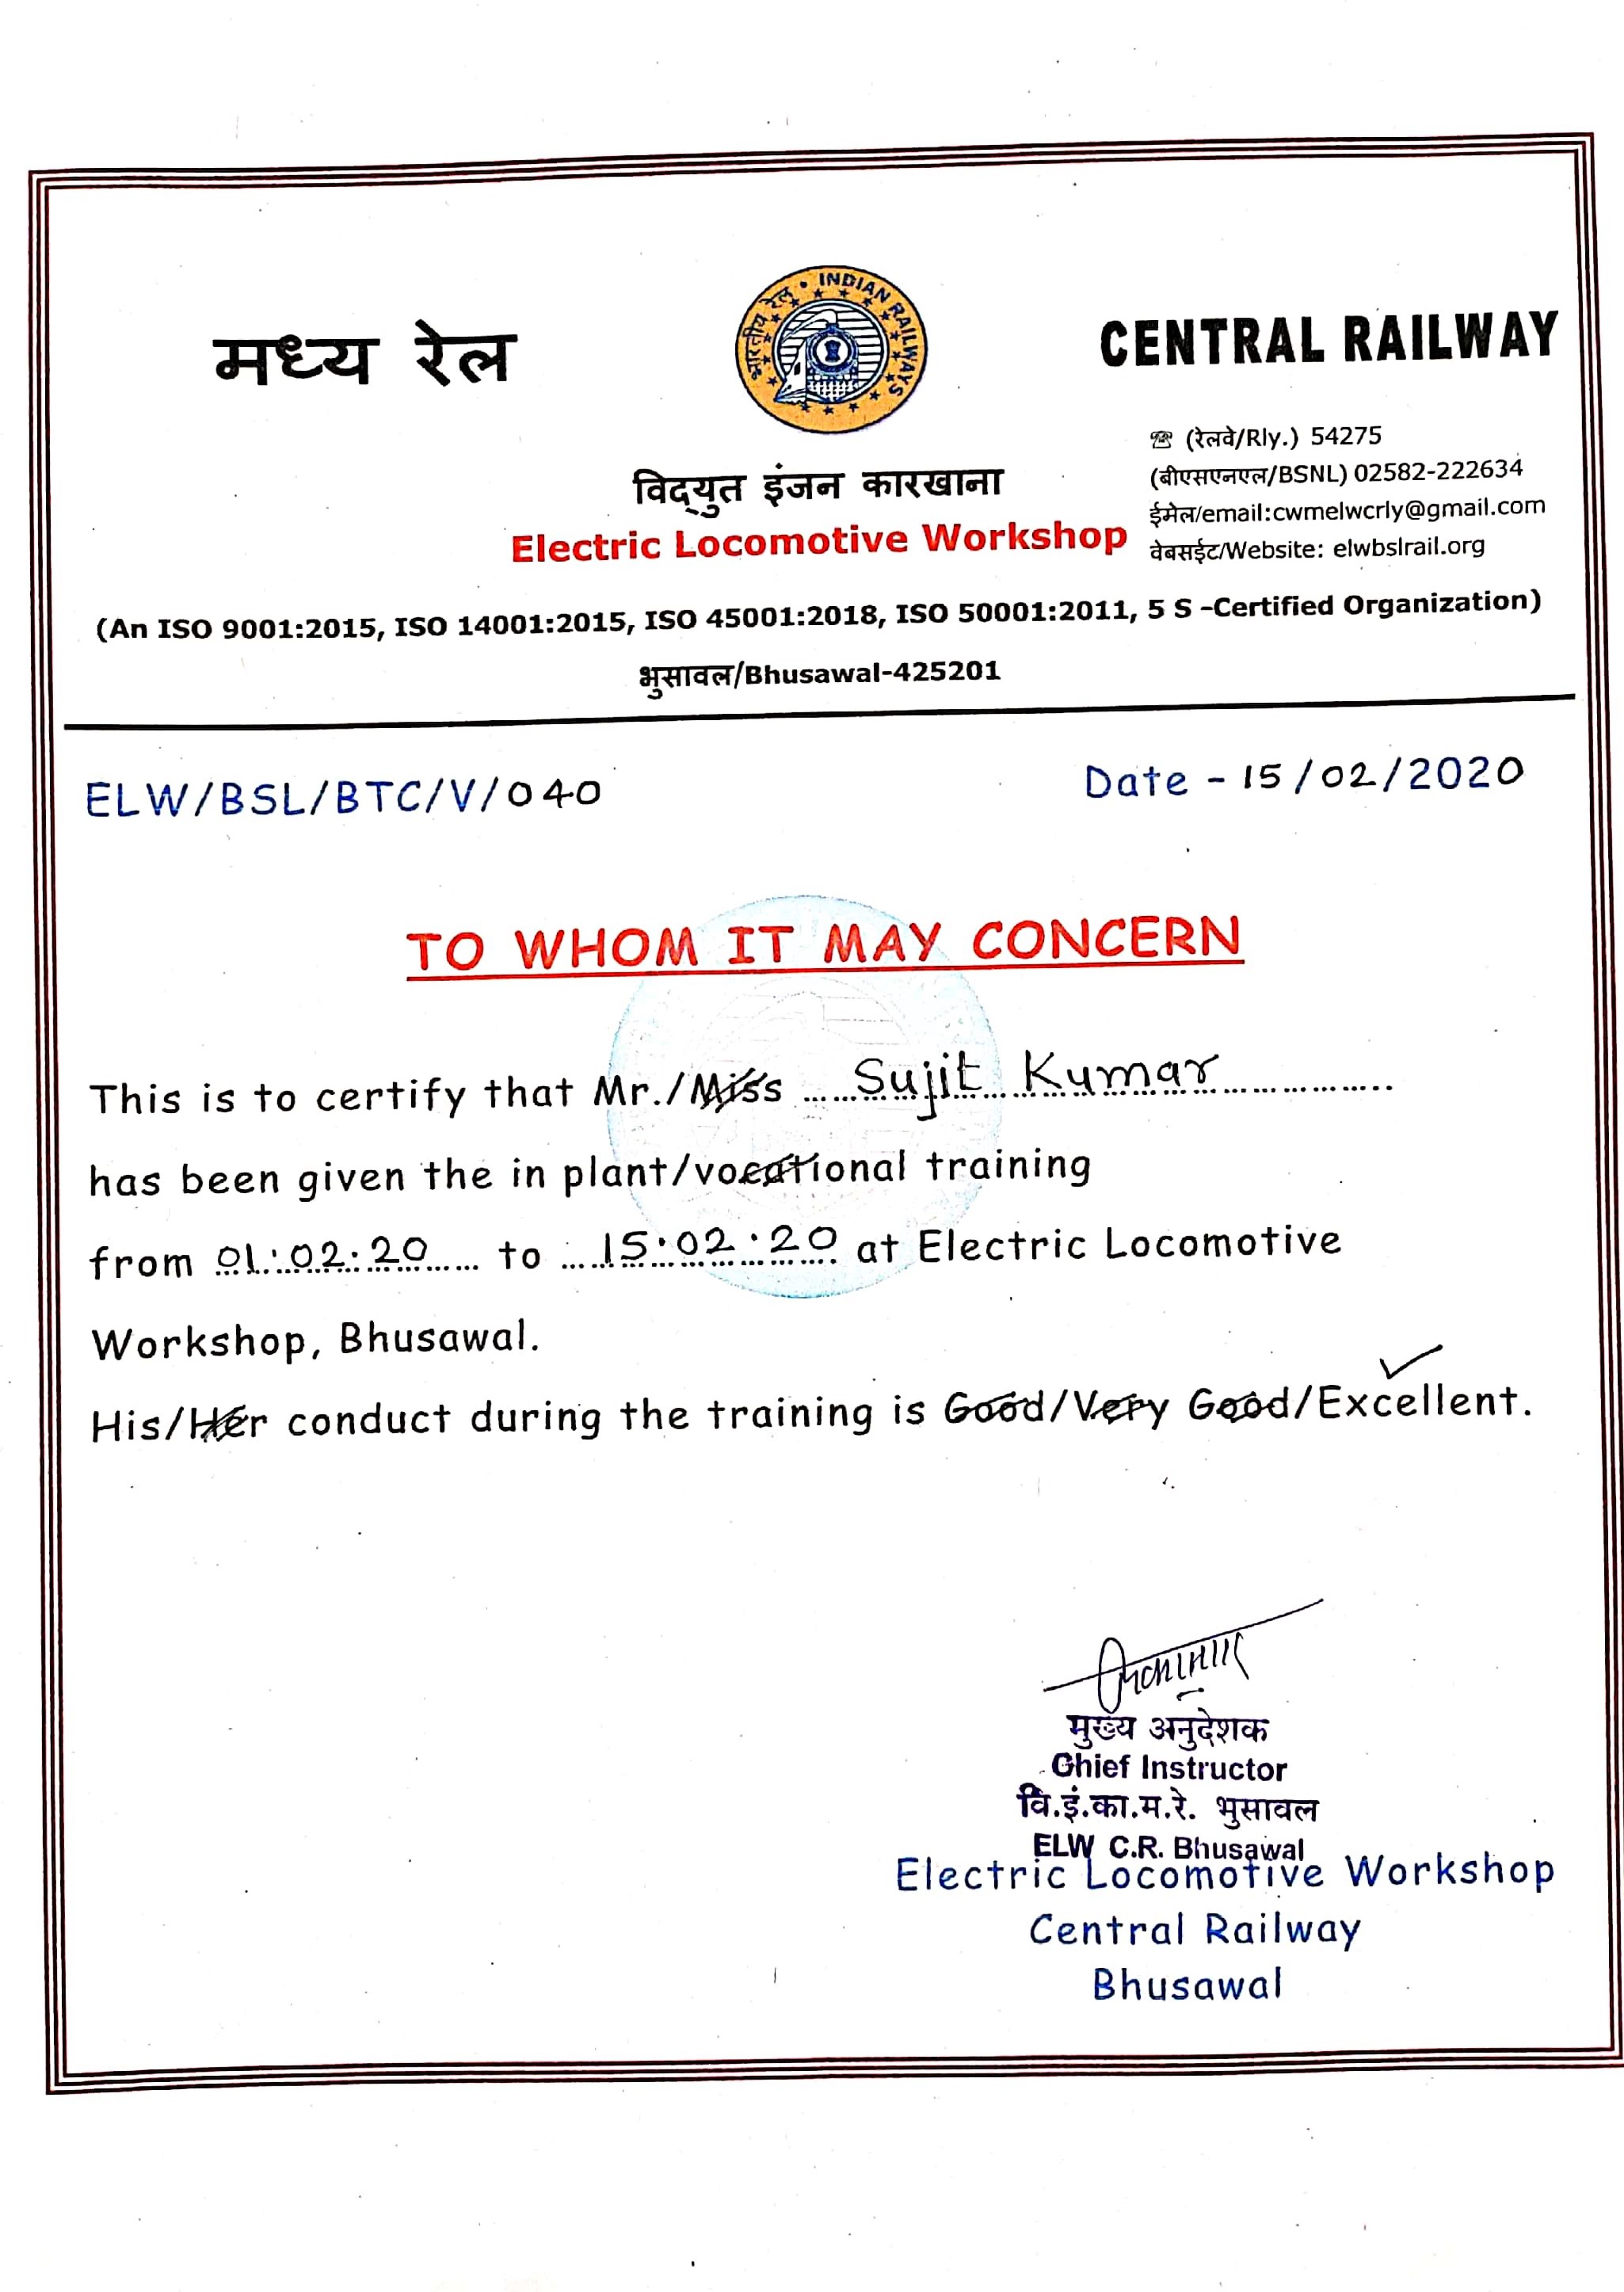 मध्य रेल
भारतीय रेल • INDIAN RAILWAYS
CENTRAL RAILWAY
☎ (रेलवे/Rly.) 54275
(बीएसएनएल/BSNL) 02582-222634
ईमेल/email:cwmelwcrly@gmail.com
वेबसईट/Website: elwbslrail.org
विद्युत इंजन कारखाना
Electric Locomotive Workshop
(An ISO 9001:2015, ISO 14001:2015, ISO 45001:2018, ISO 50001:2011, 5 S -Certified Organization)
भुसावल/Bhusawal-425201
ELW/BSL/BTC/V/040
Date - 15/02/2020
TO WHOM IT MAY CONCERN
This is to certify that Mr./Miss Sujit Kumar
has been given the in plant/vocational training
from 01.02.20 to 15.02.20 at Electric Locomotive
Workshop, Bhusawal.
His/Her conduct during the training is Good/Very Good/Excellent.
मुख्य अनुदेशक
Chief Instructor
वि.इं.का.म.रे. भुसावल
ELW C.R. Bhusawal
Electric Locomotive Workshop
Central Railway
Bhusawal